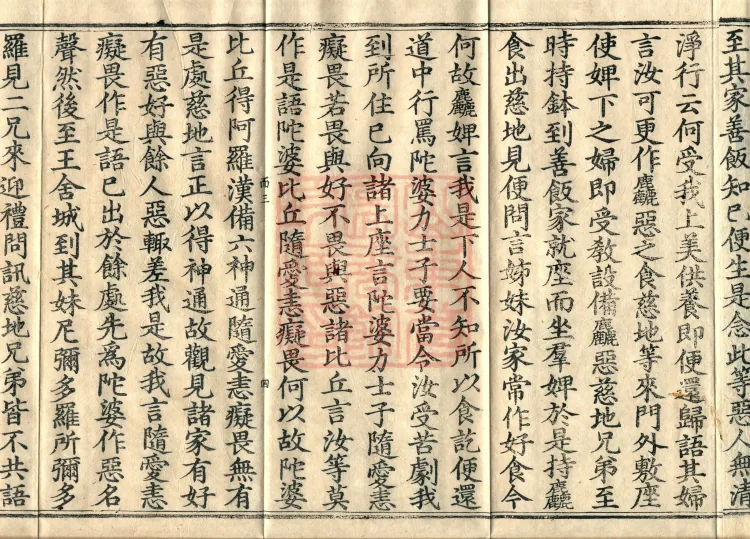 至其家善飯知已便生是念此等惡人無清
淨行云何受我上美供養即便還歸語其婦
言汝可更作麤惡之食慈地等來門外敷座
使婢下之婦即受教設備麤惡慈地兄弟至
時持鉢到善飯家就座而坐羣婢於是持麤
食出慈地見便問言姊妹汝家常作好食今
何故麤婢言我是下人不知所以食訖便還
道中行罵陀婆力士子要當令汝受苦劇我
到所住已向諸上座言陀婆力士子隨愛恚
癡畏若畏與好不畏與惡諸比丘言汝等莫
作是語陀婆比丘隨愛恚癡畏何以故陀婆
而三
四
比丘得阿羅漢備六神通隨愛恚癡畏無有
是處慈地言正以得神通故觀見諸家有好
有惡好與餘人惡輙差我是故我言隨愛恚
癡畏作是語已出於餘處先為陀婆作惡名
聲然後至王舍城到其妹尼彌多羅所彌多
羅見二兄來迎禮問訊慈地兄弟皆不共語